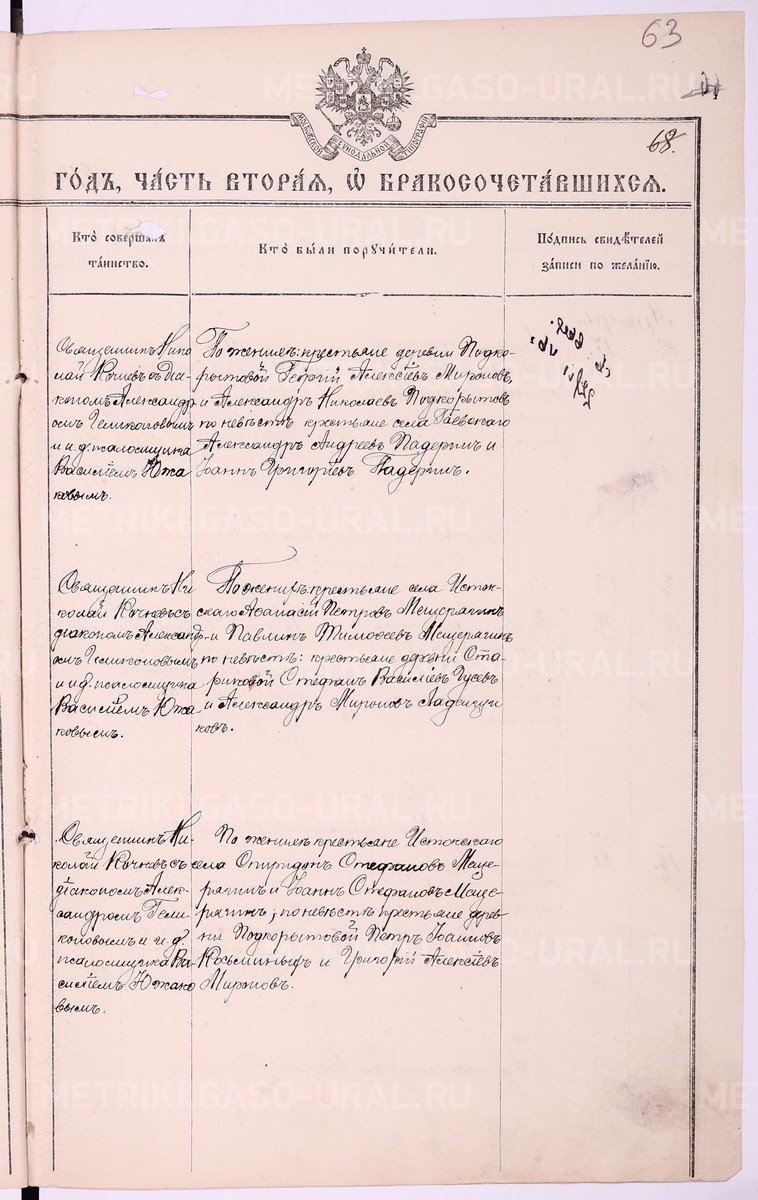 63
68.
МОСКОВСКОЙ СУНОДАЛЬНОЙ ТИПОГРАФІИ
ГО́ДЪ, ЧА́СТЬ ВТОРА́Я, Ѡ҆ БРАКОСОЧЕТА́ВШИХСЯ.
Кто̀ соверша́лъ
та́инство.
Кто̀ бы́ли порꙋчи́тели.
По́дпись свидѣ́телей
за́писи по жела́нїю.
Священникъ Нико
лай Кочневъ съ діа
кономъ Александр
омъ Геликоновымъ
и и. д. псаломщика
Василіемъ Южа
ковымъ.
По женихѣ: крестьяне деревни Подко-
рытовой Георгій Алексѣевъ Мироновъ,
и Александръ Николаевъ Подкорытовъ
по невѣстѣ крестьяне села Гаевскаго
Александръ Андреевъ Падеринъ и
Іоаннъ Григорьевъ Падеринъ.
Священникъ Ни
колай Кочневъ съ
діакономъ Александр-
омъ Геликоновымъ
и и. д. псаломщика
Василіемъ Южа
ковымъ.
По женихѣ крестьяне села Исток-
скаго Аѳанасій Петровъ Мещерягинъ
и Павлинъ Тимоѳеевъ Мещерягинъ
по невѣстѣ: крестьяне деревни Ста-
риковой Стефанъ Василіевъ Гусевъ
и Александръ Мироновъ
Священникъ Ни
колай Кочневъ съ
діакономъ Алек-
сандромъ Гели
коновымъ и и. д.
псаломщика Ва
силіемъ Южако
вымъ.
По женихѣ крестьяне Истокскаго
села Спиридонъ Стефановъ Меще-
рягинъ и Іоаннъ Стефановъ Меще-
рягинъ; по невѣстѣ крестьяне дерев-
ни Подкорытовой Петръ Іоанновъ
Козьминыхъ и Григорій Алексѣевъ
Мироновъ.
METRIKI.GASO-URAL.RU